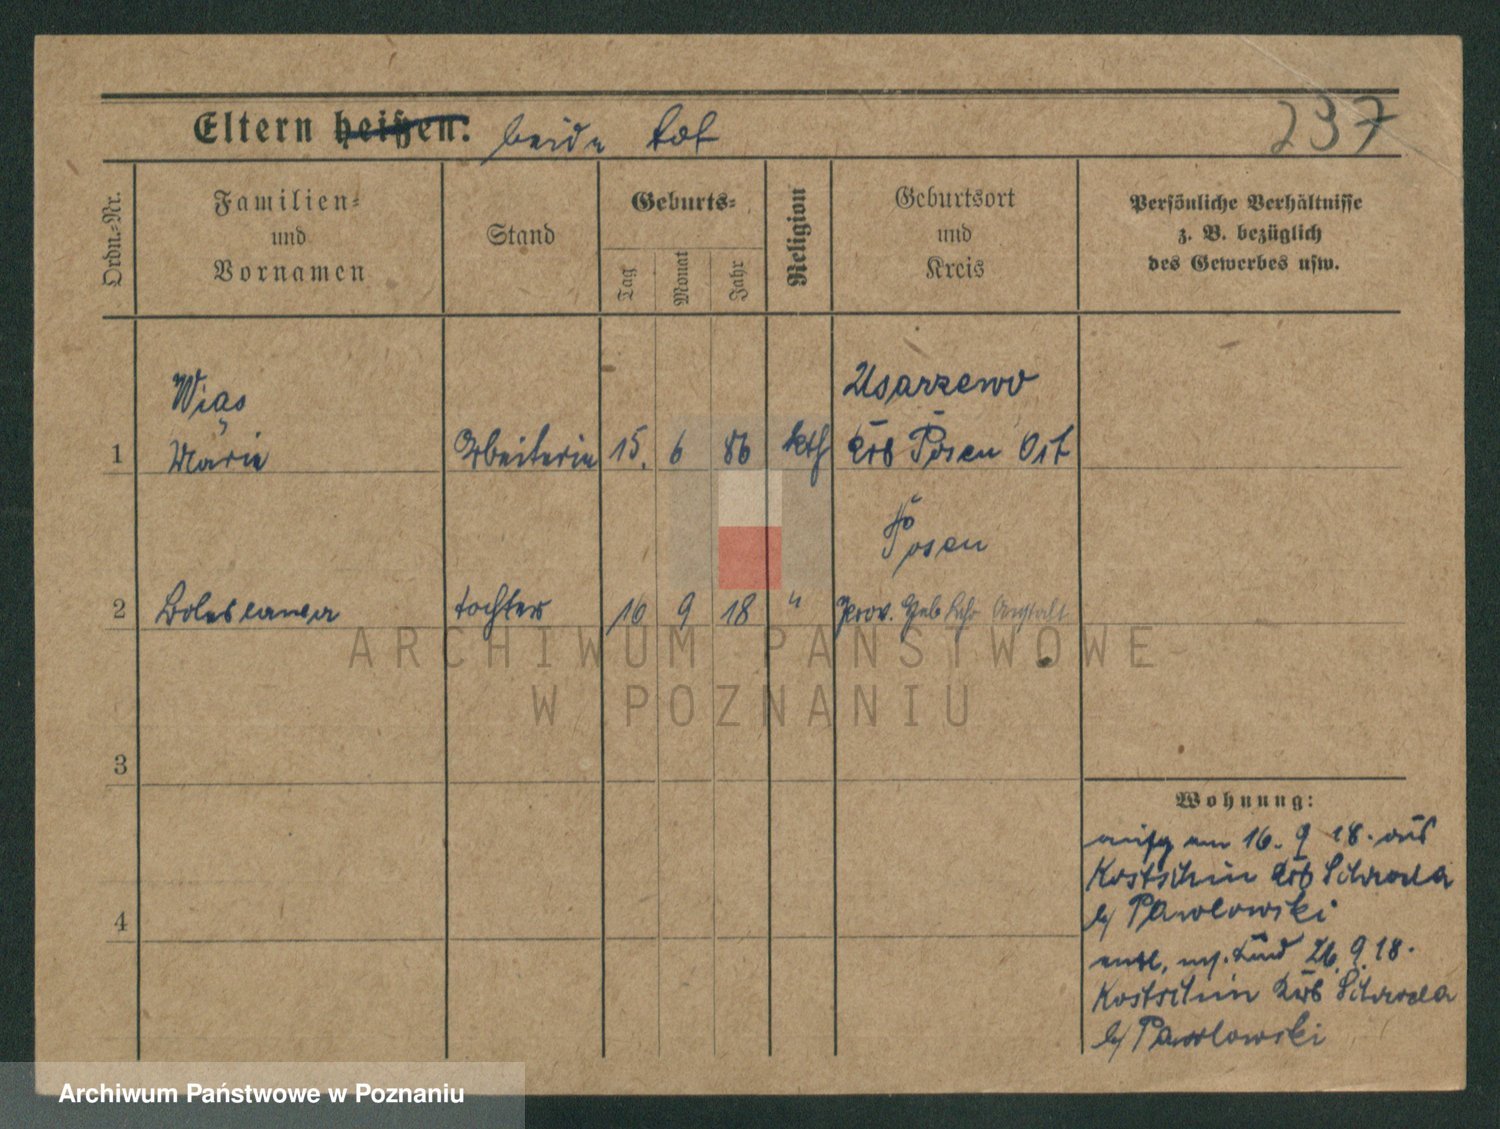 Eltern heißen: beide tot
237
Ordn.-Nr.
Familien-
und
Vornamen
Stand
Geburts-
Tag
Monat
Jahr
Religion
Geburtsort
und
Kreis
Persönliche Verhältnisse
z. B. bezüglich
des Gewerbes usw.
Wiąs
Usarzewo
1 Marie Arbeiterin 15. 6 86 kth Krs Posen Ost
Posen
2 Boleslawa tochter 16 9 18 " Prov. Heb Lehr Anstalt
3
4
Wohnung:
aufg am 16. 9 18. aus
Kostschin Krs Schroda
b/ Pawlowski
entl. m. Kind 26. 9. 18.
Kostschin Krs Schroda
b/ Pawlowski
ARCHIWUM PAŃSTWOWE
W POZNANIU
Archiwum Państwowe w Poznaniu